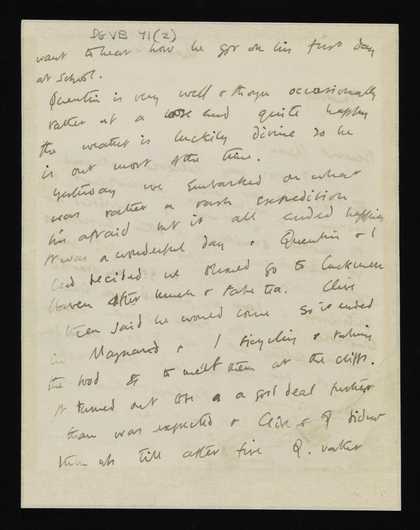 want to hear how he got on his first day
at school.
Quentin is very well & though occasionally
rather at a loose end quite happy
the weather is luckily divine so he
is out most of the time.
Yesterday we embarked on what
was rather a rash expedition
I'm afraid but it all ended happily
It was a wonderful day & Quentin & I
had decided we should go to
Haven after lunch & take tea. Clive
then said he would come so it ended
in Maynard & I bicycling & taking
the food & to meet them at the cliffs.
It turned out to be a good deal further
than was expected & Clive & Q didn't
till after five Q. rather